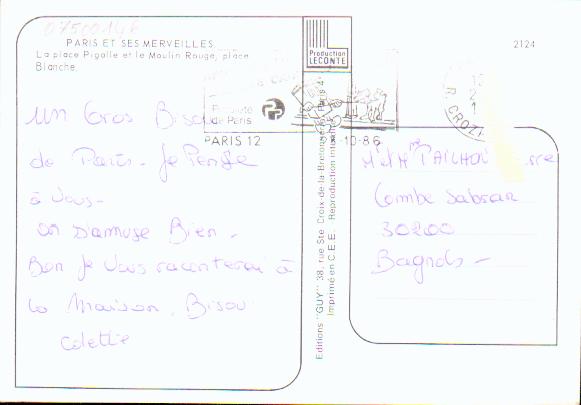 07500146
PARIS ET SES MERVEILLES
La place Pigalle et le Moulin Rouge, place
Blanche.
Production
LECONTE
2124
de Paris
PARIS 12
-10-86
R. CROZ
Un Gros Bisou
de Paris. Je Pense
à Vous.
on s'amuse Bien.
Bon Je Vous raconterai à
la Maison. Bisou
Colette
Editions "GUY" 38, rue Ste Croix-de-la-Bretonnerie Paris 4
Imprimé en C.E.E. Reproduction
M et Mme
Combe Sabran
30200
Bagnols -